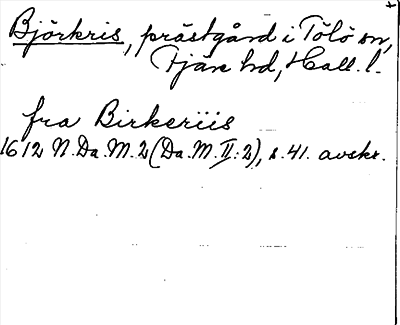 Björkris, prästgård i Tölö sn,
Fjäre hd, Hall. l.
fra Birkeriis
1612 N.Da.M.2 (Da.M.II:2), s.41. avskr.